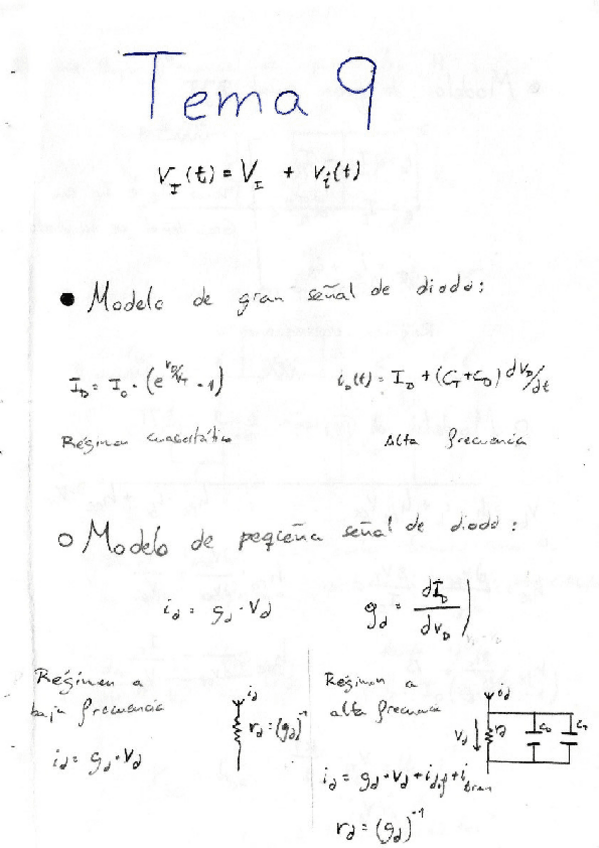 Tema 9
V_I(t) = V_I + v_i(t)
● Modelo de gran señal de diodo:
I_D = I_0 · (e^{V_D/V_T} - 1)
i_D(t) = I_D + (C_T + C_D) dV_D/dt
Régimen cuasiestático
Alta frecuencia
○ Modelo de peqeña señal de diodo:
i_d = g_d · V_d
g_d = dI_D/dV_D |
Régimen a
baja frecuencia
i_d = g_d · V_d
i_d
r_d = (g_d)^-1
Régimen a
alta frecuencia
i_d
V_d
r_d
C_D
C_T
i_d = g_d · V_d + i_dif + i_tran
r_d = (g_d)^-1